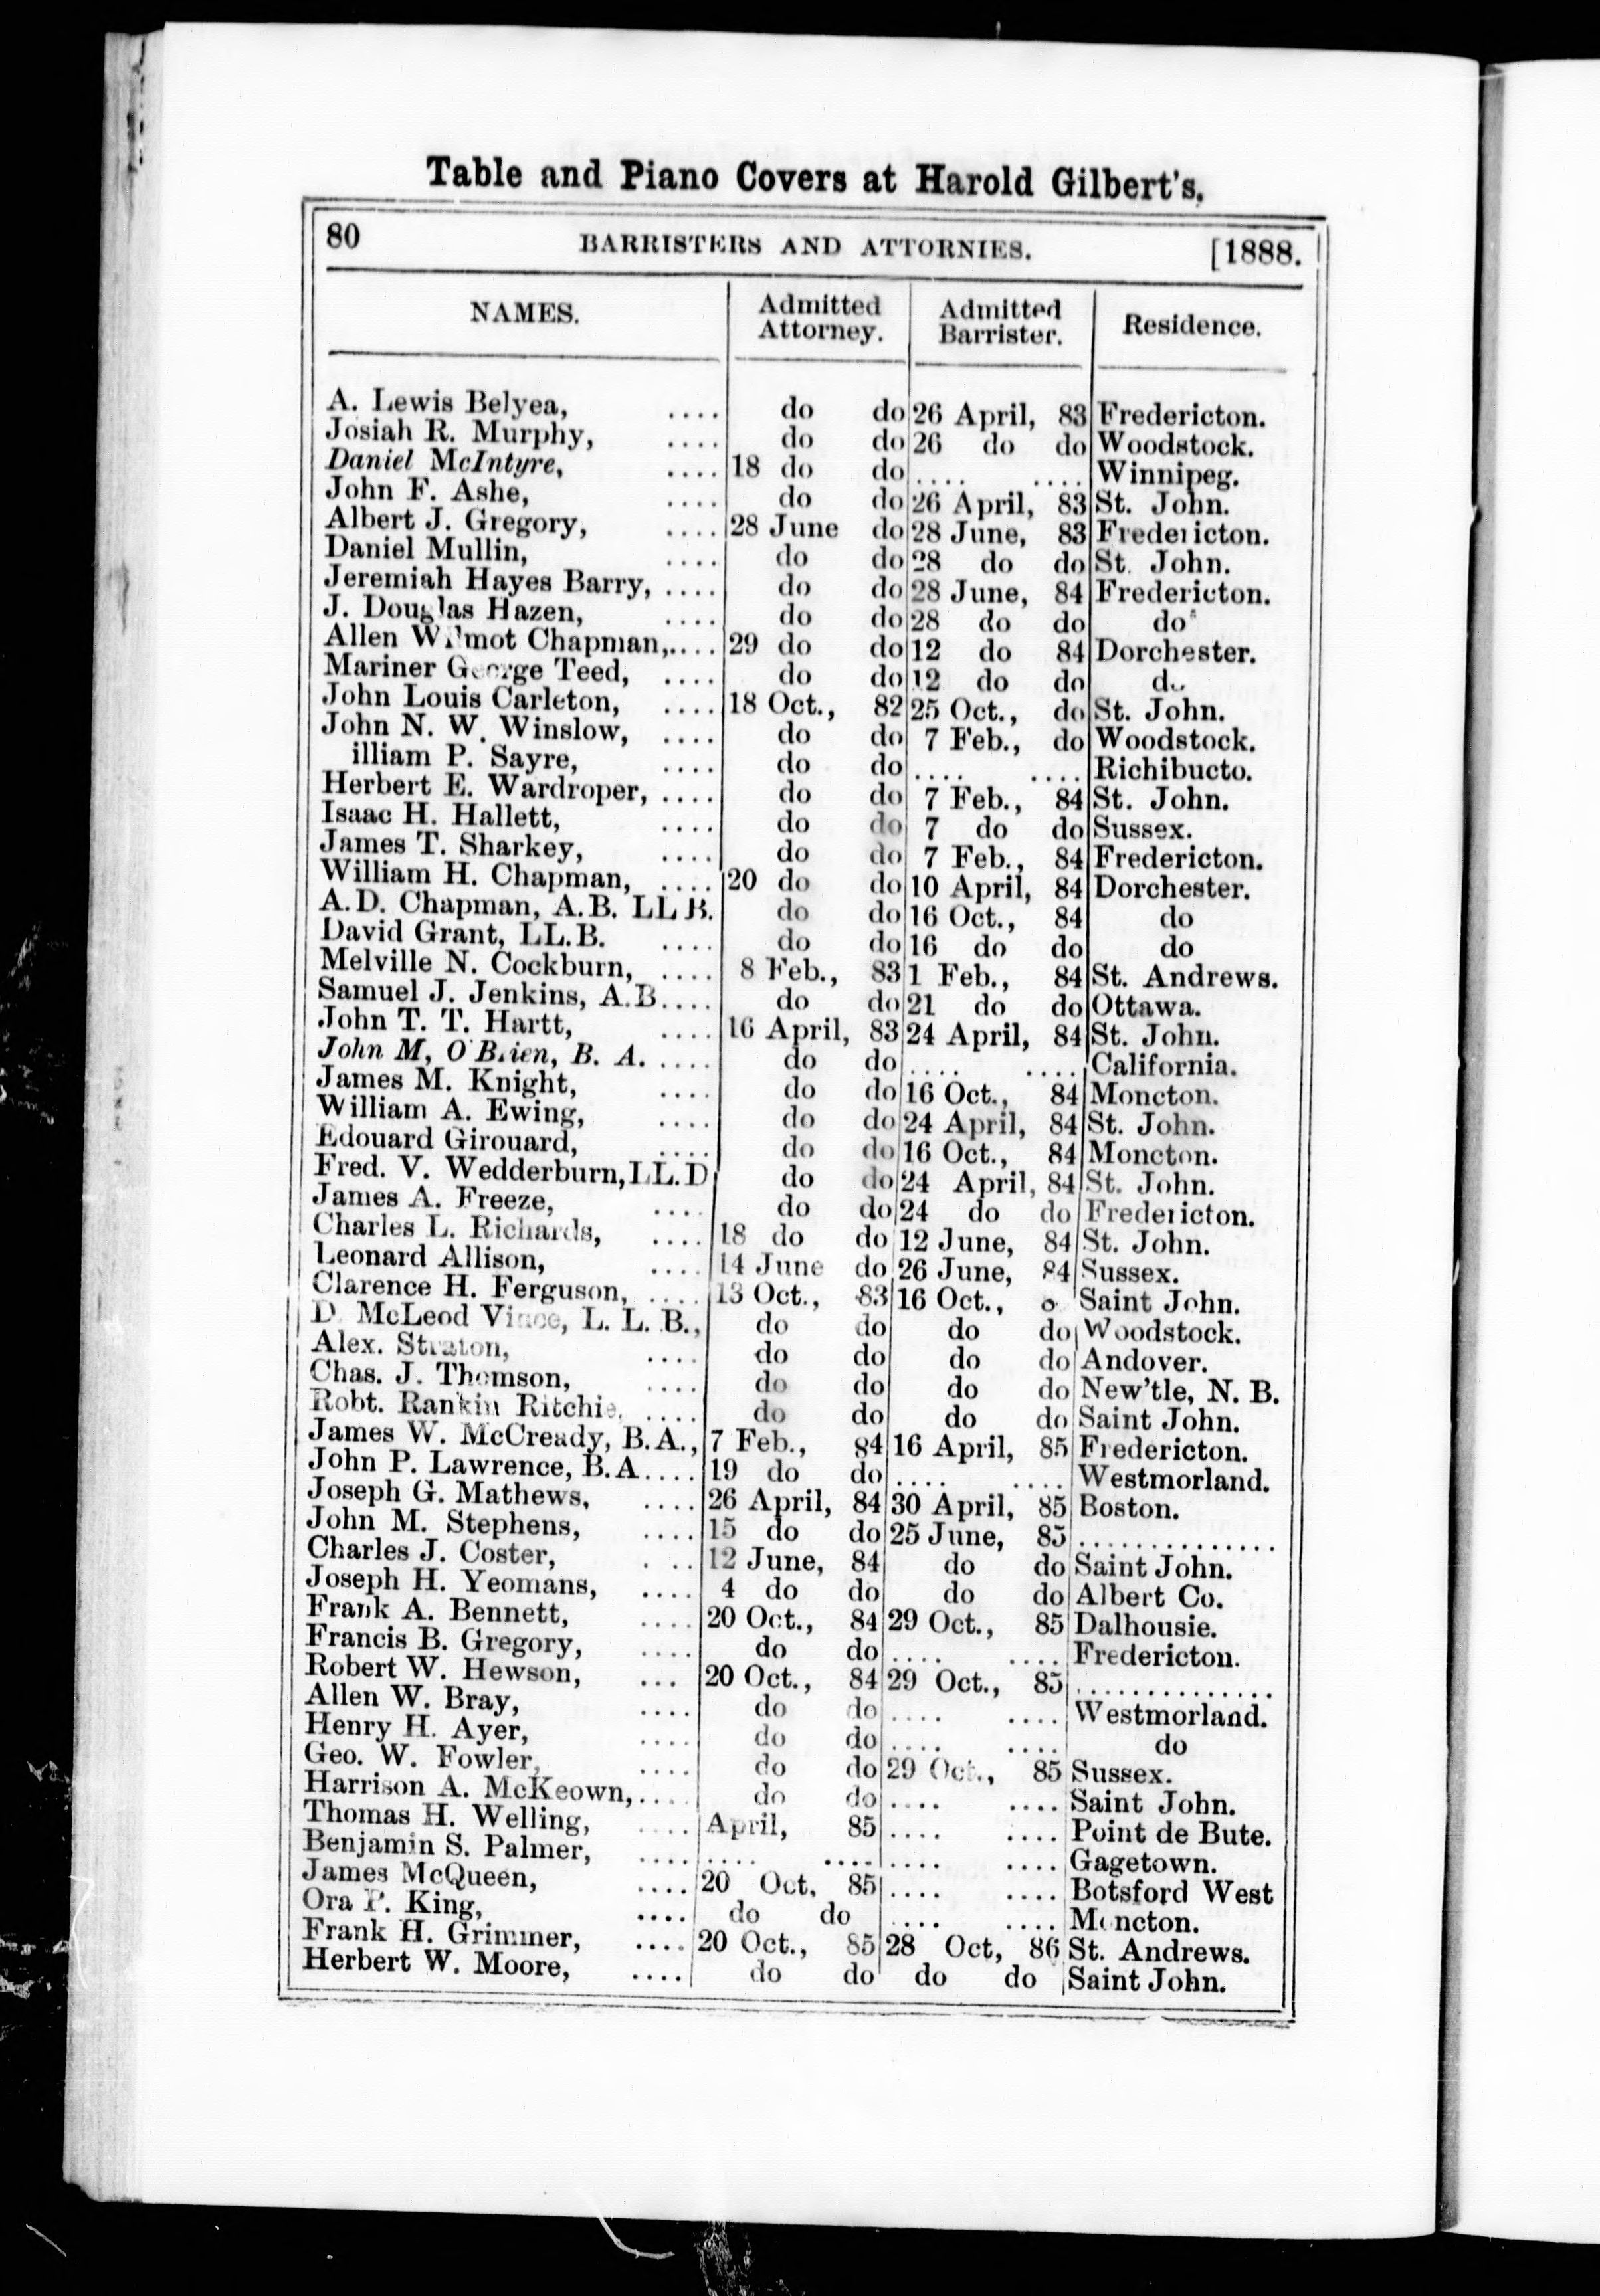 Table and Piano Covers at Harold Gilbert's.
80 BARRISTERS AND ATTORNIES. [1888.
NAMES. Admitted Attorney. Admitted Barrister. Residence.
A. Lewis Belyea, .... do do 26 April, 83 Fredericton.
Josiah R. Murphy, .... do do 26 do do Woodstock.
Daniel McIntyre, .... 18 do do .... .... Winnipeg.
John F. Ashe, .... do do 26 April, 83 St. John.
Albert J. Gregory, .... 28 June do 28 June, 83 Fredericton.
Daniel Mullin, .... do do 28 do do St. John.
Jeremiah Hayes Barry, .... do do 28 June, 84 Fredericton.
J. Douglas Hazen, .... do do 28 do do do
Allen Wilmot Chapman,.... 29 do do 12 do 84 Dorchester.
Mariner George Teed, .... do do 12 do do do
John Louis Carleton, .... 18 Oct., 82 25 Oct., do St. John.
John N. W. Winslow, .... do do 7 Feb., do Woodstock.
illiam P. Sayre, .... do do .... .... Richibucto.
Herbert E. Wardroper, .... do do 7 Feb., 84 St. John.
Isaac H. Hallett, .... do do 7 do do Sussex.
James T. Sharkey, .... do do 7 Feb., 84 Fredericton.
William H. Chapman, .... 20 do do 10 April, 84 Dorchester.
A. D. Chapman, A.B. LL B. do do 16 Oct., 84 do
David Grant, LL.B. .... do do 16 do do do
Melville N. Cockburn, .... 8 Feb., 83 1 Feb., 84 St. Andrews.
Samuel J. Jenkins, A.B.... do do 21 do do Ottawa.
John T. T. Hartt, .... 16 April, 83 24 April, 84 St. John.
John M, O'Brien, B. A. .... do do .... .... California.
James M. Knight, .... do do 16 Oct., 84 Moncton.
William A. Ewing, .... do do 24 April, 84 St. John.
Edouard Girouard, .... do do 16 Oct., 84 Moncton.
Fred. V. Wedderburn, LL.D do do 24 April, 84 St. John.
James A. Freeze, .... do do 24 do do Fredericton.
Charles L. Richards, .... 18 do do 12 June, 84 St. John.
Leonard Allison, .... 14 June do 26 June, 84 Sussex.
Clarence H. Ferguson, .... 13 Oct., 83 16 Oct., o Saint John.
D. McLeod Vince, L. L. B., do do do do Woodstock.
Alex. Straton, .... do do do do Andover.
Chas. J. Thomson, .... do do do do New'tle, N. B.
Robt. Rankin Ritchie, .... do do do do Saint John.
James W. McCready, B.A., 7 Feb., 84 16 April, 85 Fredericton.
John P. Lawrence, B.A.... 19 do do .... .... Westmorland.
Joseph G. Mathews, .... 26 April, 84 30 April, 85 Boston.
John M. Stephens, .... 15 do do 25 June, 85 ..............
Charles J. Coster, . .. 12 June, 84 do do Saint John.
Joseph H. Yeomans, .... 4 do do do do Albert Co.
Frank A. Bennett, .... 20 Oct., 84 29 Oct., 85 Dalhousie.
Francis B. Gregory, .... do do .... .... Fredericton.
Robert W. Hewson, ... 20 Oct., 84 29 Oct., 85 ..............
Allen W. Bray, .... do do .... .... Westmorland.
Henry H. Ayer, .... do do .... .... do
Geo. W. Fowler, .... do do 29 Oct., 85 Sussex.
Harrison A. McKeown,.... do do .... .... Saint John.
Thomas H. Welling, .... April, 85 .... .... Point de Bute.
Benjamin S. Palmer, .... .... .... .... .... Gagetown.
James McQueen, .... 20 Oct. 85 .... .... Botsford West
Ora P. King, .... do do .... .... Moncton.
Frank H. Grimmer, .... 20 Oct., 85 28 Oct, 86 St. Andrews.
Herbert W. Moore, .... do do do do Saint John.